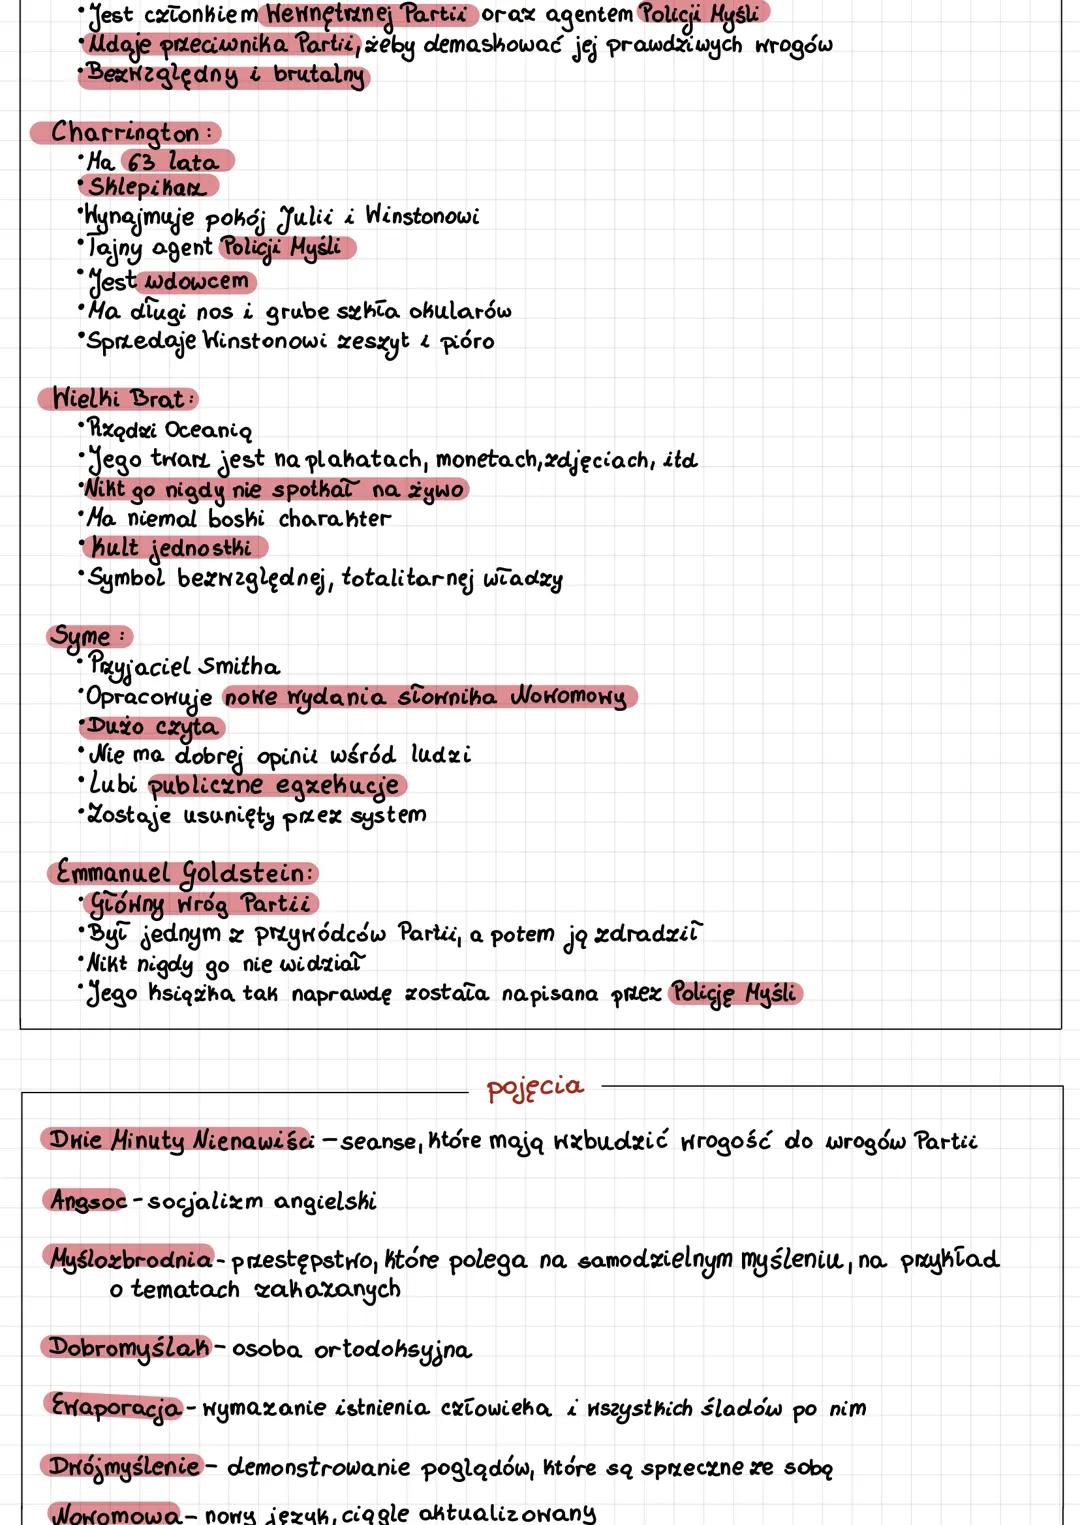 •Jest członkiem Wewnętrznej Partii oraz agentem Policji Myśli
•Udaje przeciwnika Partii, żeby demaskować jej prawdziwych wrogów
•Bezwzględny i brutalny
Charrington:
•Ma 63 lata
•Sklepikarz
•Wynajmuje pokój Julii i Winstonowi
•Tajny agent Policji Myśli
•Jest wdowcem
•Ma długi nos i grube szkła okularów
•Sprzedaje Winstonowi zeszyt i pióro
Wielki Brat:
•Rządzi Oceanią
•Jego twarz jest na plakatach, monetach, zdjęciach, itd
•Nikt go nigdy nie spotkał na żywo
•Ma niemal boski charakter
•Kult jednostki
•Symbol bezwzględnej, totalitarnej władzy
Syme:
•Przyjaciel Smitha
•Opracowuje nowe wydania słownika Nowomowy
•Dużo czyta
•Nie ma dobrej opinii wśród ludzi
•Lubi publiczne egzekucje
•Zostaje usunięty przez system
Emmanuel Goldstein:
•Główny wróg Partii
•Był jednym z przywódców Partii, a potem ją zdradził
•Nikt nigdy go nie widział
•Jego książka tak naprawdę została napisana przez Policję Myśli
pojęcia
Dwie Minuty Nienawiści - seanse, które mają wzbudzić wrogość do wrogów Partii
Angsoc - socjalizm angielski
Myślozbrodnia - przestępstwo, które polega na samodzielnym myśleniu, na przykład
o tematach zakazanych
Dobromyślak - osoba ortodoksyjna
Ewaporacja - wymazanie istnienia człowieka i wszystkich śladów po nim
Dwójmyślenie - demonstrowanie poglądów, które są sprzeczne ze sobą
Nowomowa - nowy język, ciągle aktualizowany